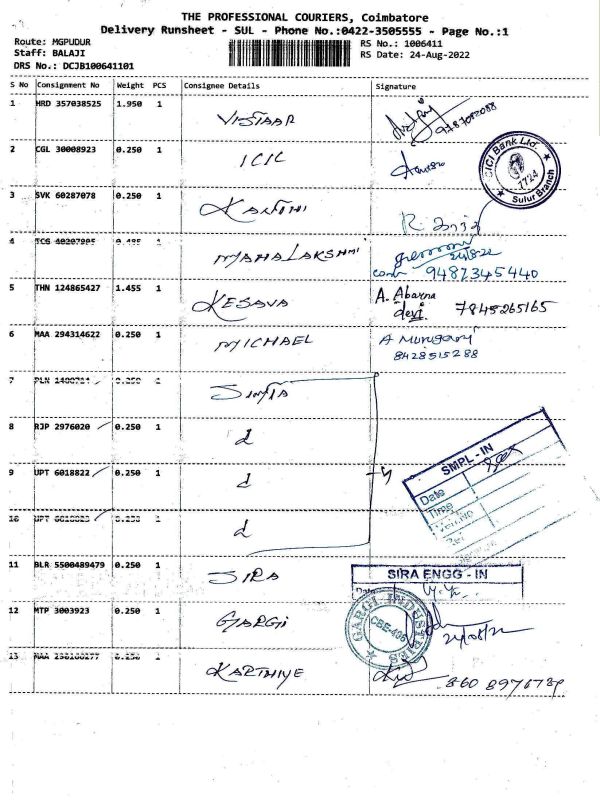 THE PROFESSIONAL COURIERS, Coimbatore
Delivery Runsheet - SUL - Phone No.:0422-3505555 - Page No.:1
Route: MGPUDUR RS No.: 1006411
Staff: BALAJI RS Date: 24-Aug-2022
DRS No.: DCJB100641101
S No Consignment No Weight PCS Consignee Details Signature
1 HRD 357038525 1.950 1 9787082088
2 CGL 30008923 0.250 1 ICIC
ICICI Bank Ltd.
1724
Sulur Branch
3 SVK 60287078 0.250 1 KANTHI R.
4 1 MAHALAKSHMI
24/8/22
9487345440
5 THN 124865427 1.455 1 KESAVA A. Abarna
devi 7845265165
6 MAA 294314622 0.250 1 MICHAEL A Murugan
8428515288
7 PLN 1 SIMTA
8 RJP 2976020 0.250 1 d
9 UPT 6018822 0.250 1 d
10 UPT 1 d
SMPL - IN
Date
Time
11 BLR 5500489479 0.250 1 SIRA
SIRA ENGG - IN
12 MTP 3003923 0.250 1 GARGI
GARGI INDUSTRIES
24/08/22
13 MAA 1 KARTHIYE